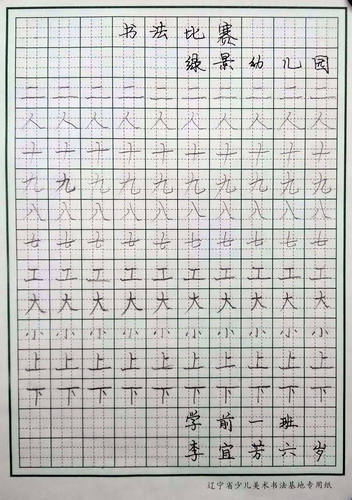 书法比赛
绿景幼儿园
二二二二二二二二二二
人人人人人人人人人人
廾廾廾廾廾廾廾廾廾廾
九九九九九九九九九九
八八八八八八八八八八
七七七七七七七七七七
工工工工工工工工工工
大大大大大大大大大大
小小小小小小小小小小
上上上上上上上上上上
下下下下下下下下下下
学前一班
李宜芳六岁
辽宁省少儿美术书法基地专用纸